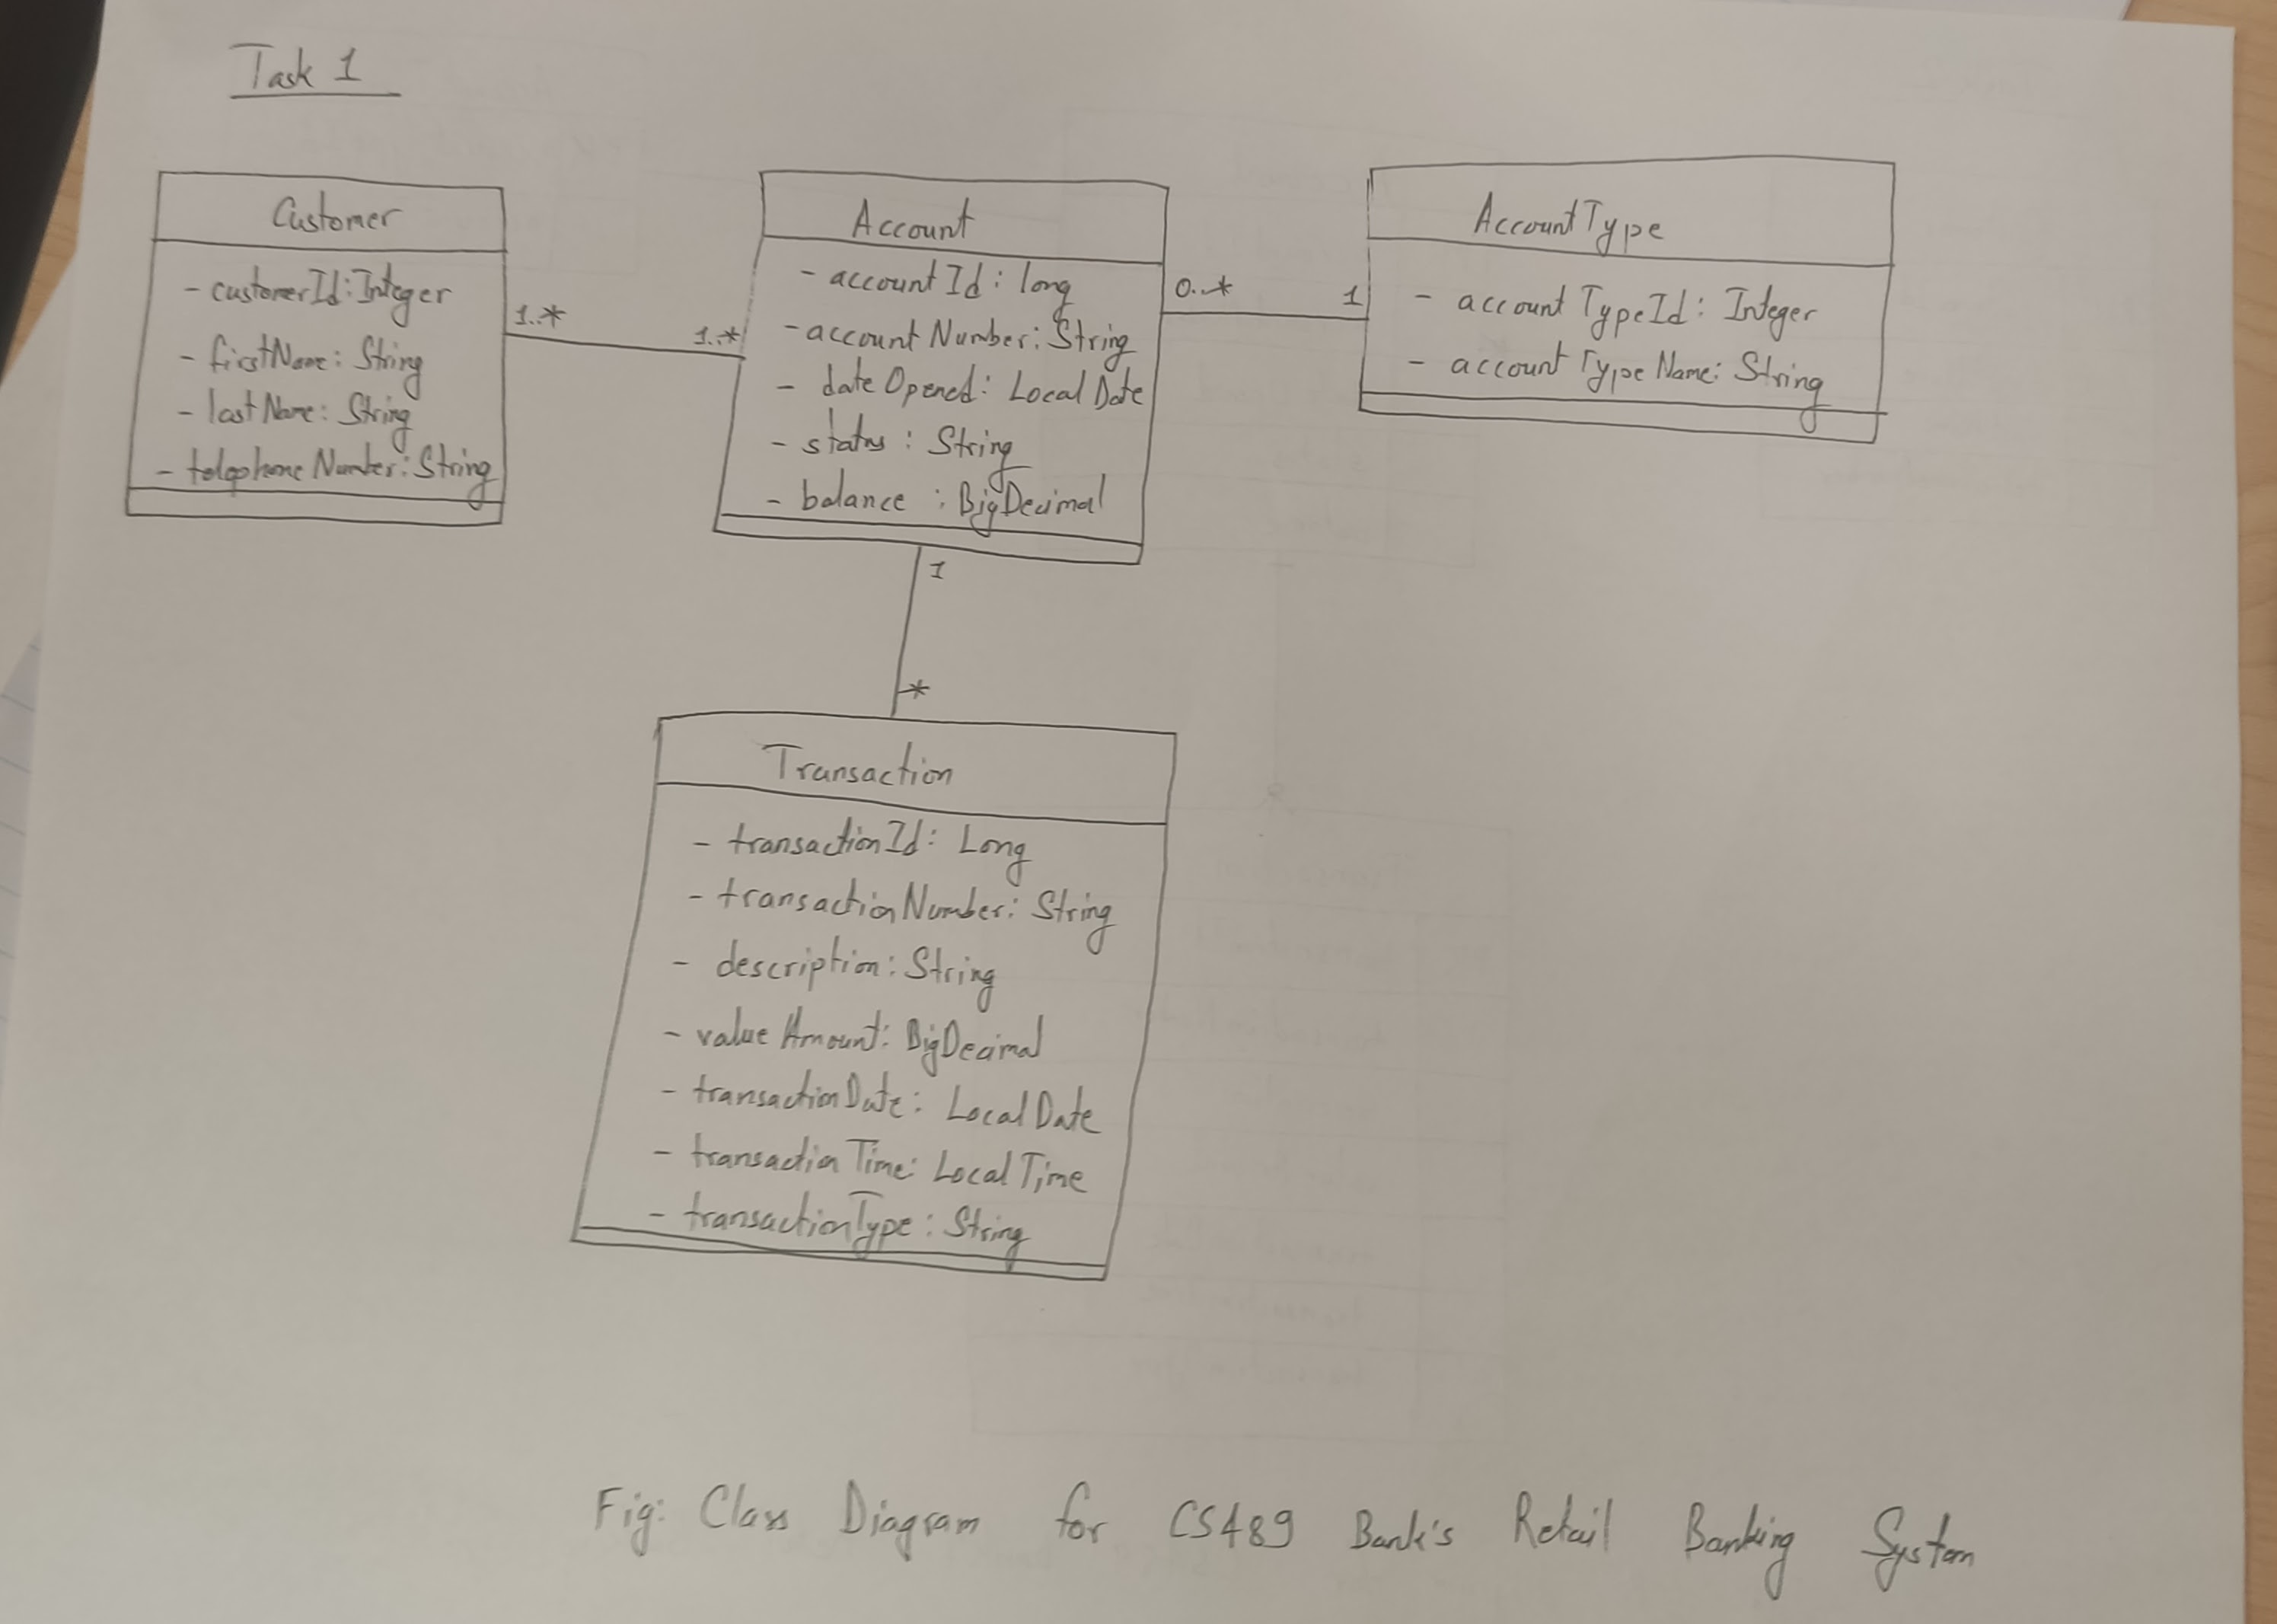 Task 1
Customer
- customerId: Integer
- firstName: String
- lastName: String
- telephoneNumber: String
1..*
1..*
Account
- accountId: long
- accountNumber: String
- dateOpened: LocalDate
- status: String
- balance: BigDecimal
0..*
1
AccountType
- accountTypeId: Integer
- accountTypeName: String
1
*
Transaction
- transactionId: Long
- transactionNumber: String
- description: String
- valueAmount: BigDecimal
- transactionDate: LocalDate
- transactionTime: LocalTime
- transactionType: String
Fig: Class Diagram for CS489 Bank's Retail Banking System